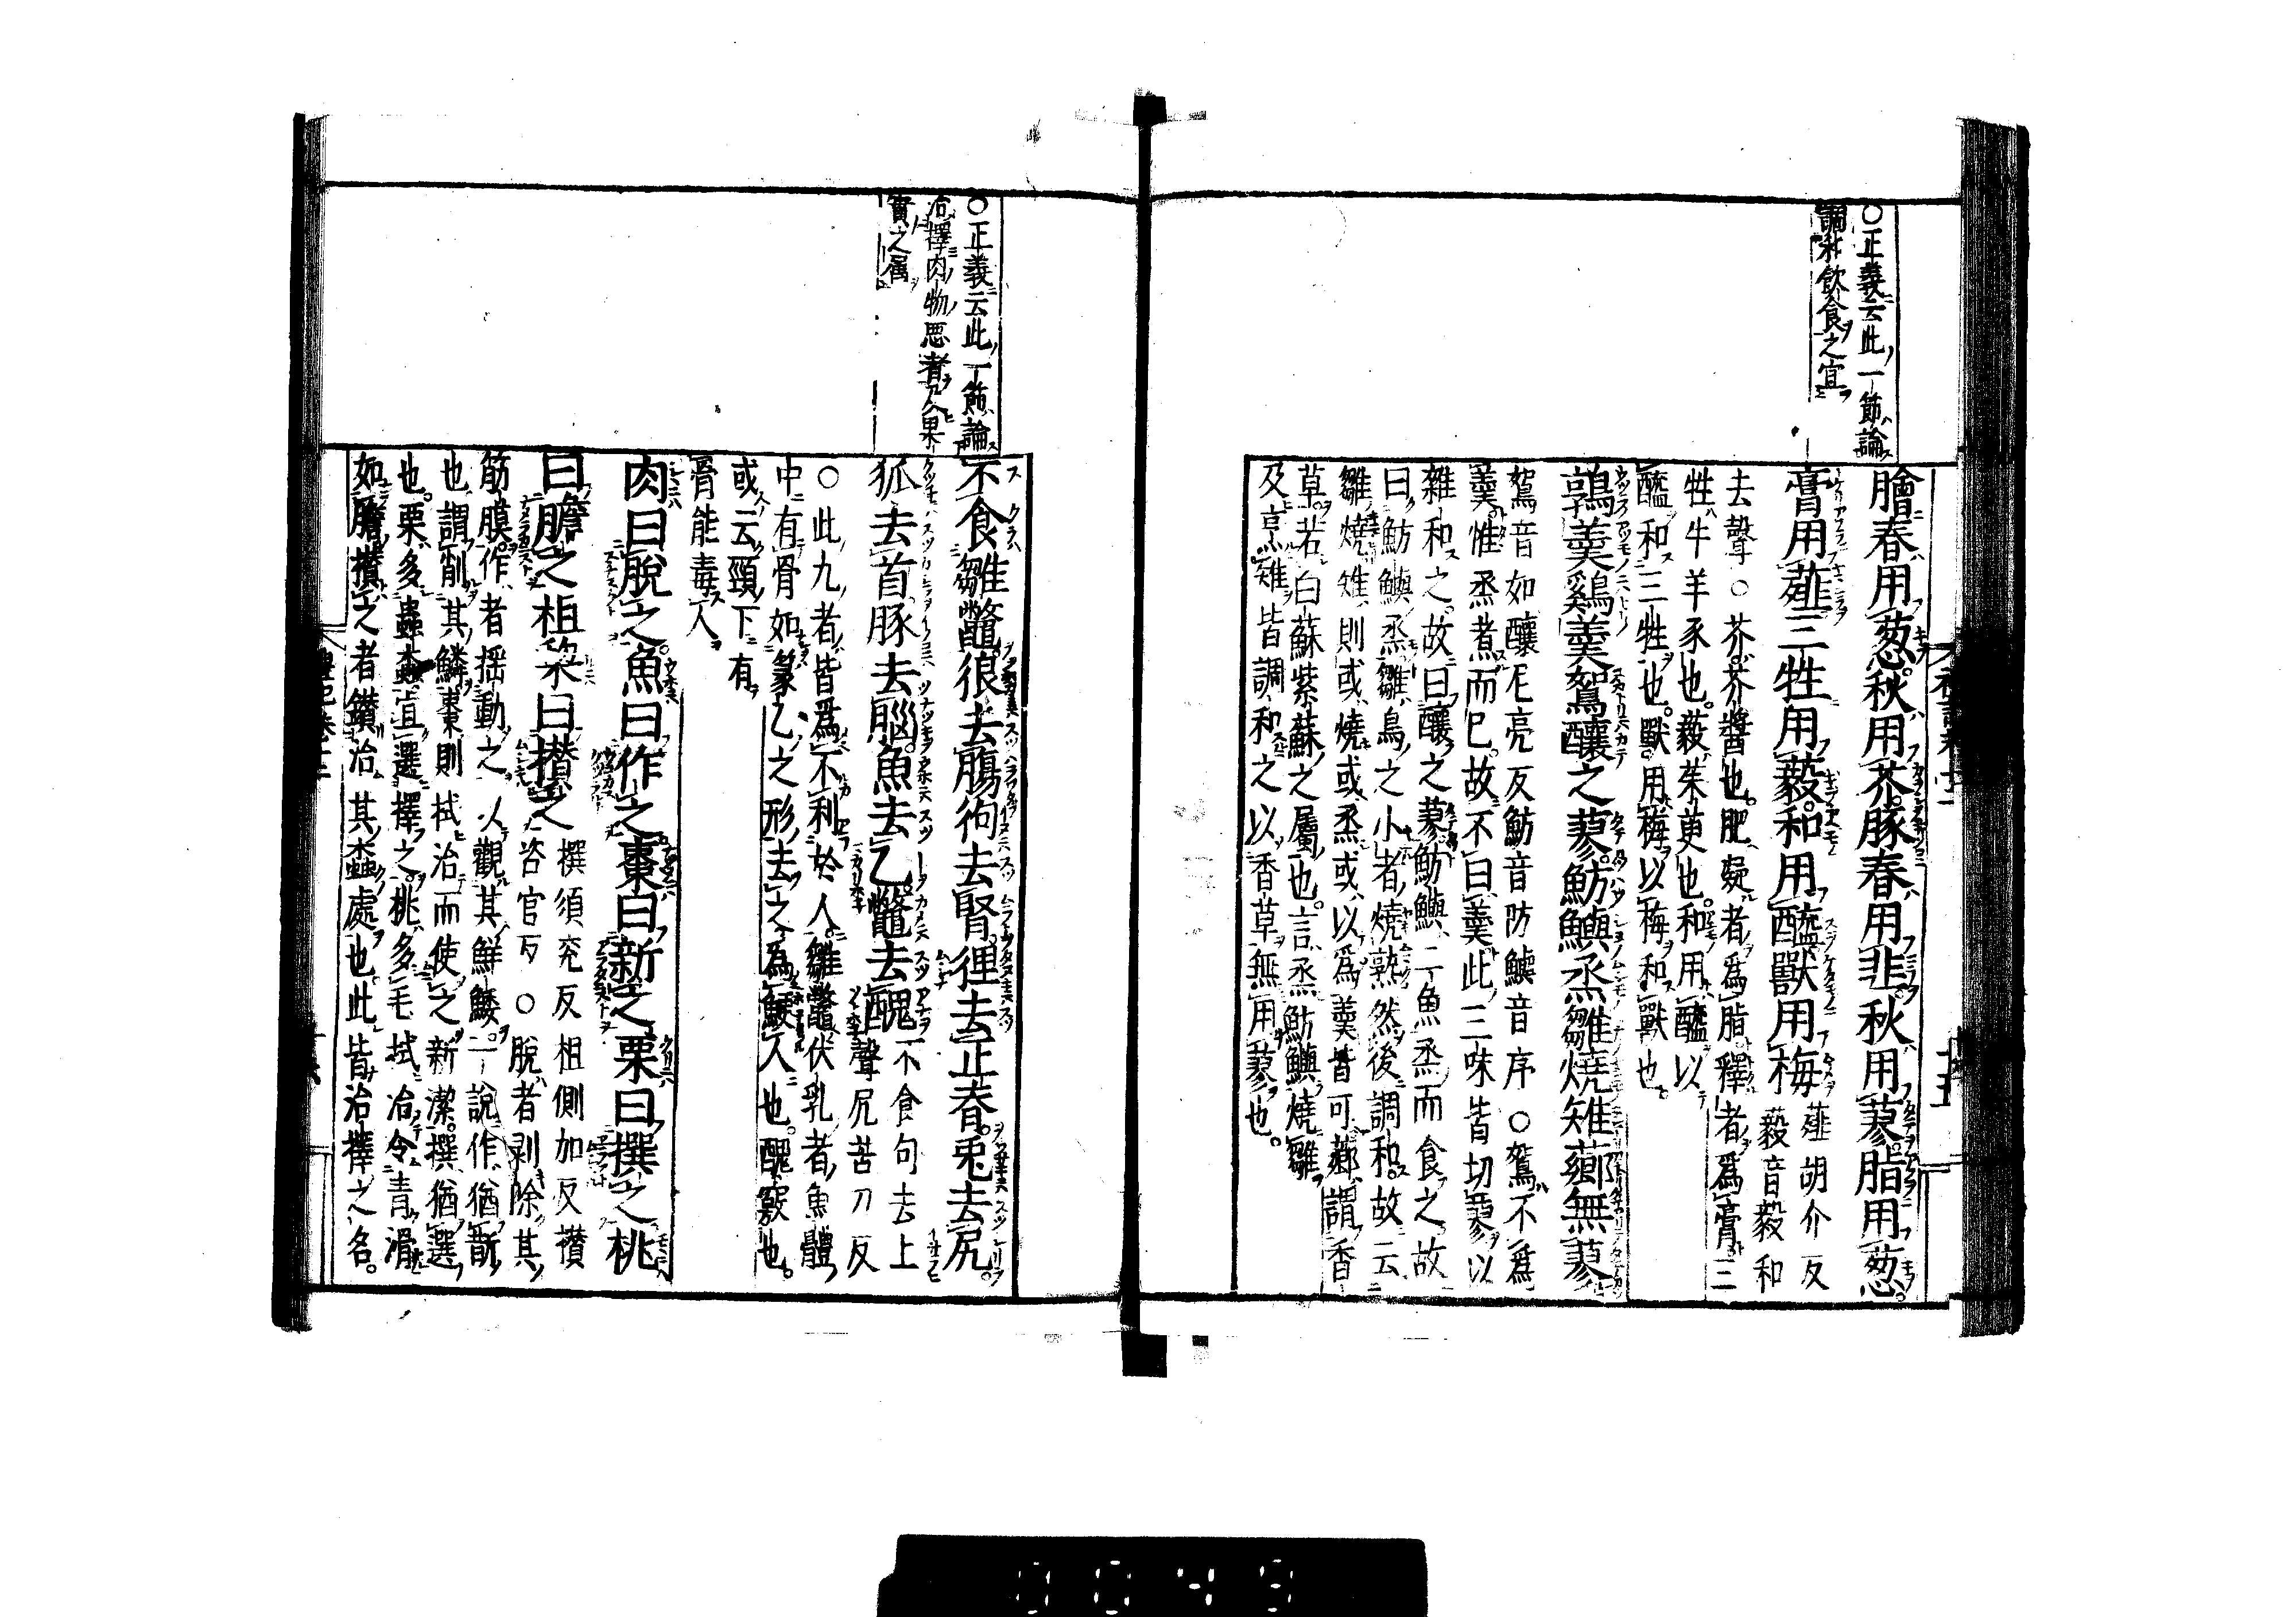 ○正義云此一節論
調和飲食之宜
膾春用葱秋用芥豚春用韭秋用蓼脂用葱
膏用薤三牲用藙和用醯獸用梅 薤胡介反藙音毅和
去聲○芥芥醬也肥凝者爲脂釋者爲膏三
牲牛羊豕也藙茱萸也和用醯以
醯和三牲也獸用梅以梅和獸也
鶉羹雞羹鴽釀之蓼魴鱮烝雛燒雉薌無蓼
鴽音如釀女亮反魴音防鱮音序○鴽不爲
羹惟烝煮而已故不曰羹此三味皆切蓼以
雜和之故曰釀之蓼魴鱮二魚烝而食之故
曰魴鱮烝雛鳥之小者燒熟然後調和故云
雛燒雉則或燒或烝或以爲羹皆可薌謂香
草若白蘇紫蘇之屬也言烝魴鱮燒雛
及烹雉皆調和之以香草無用蓼也
○正義云此一節論
治擇肉物惡者及果
實之属
不食雛鼈狼去腸狗去腎狸去正脊兎去尻
狐去首豚去腦魚去乙鼈去醜 不食句去上聲尻苦刀反
○此九者皆爲不利於人雛鼈伏乳者魚體
中有骨如篆乙之形去之爲鯁人也醜竅也
或云頸下有
骨能毒人
肉曰脫之魚曰作之棗曰新之栗曰撰之桃
曰膽之柤棃曰攢之 撰須兖反柤側加反攢
咨官反○脫者剥除其
筋膜作者揺動之以觀其鮮鯘一說作猶斮
也謂削其鱗棗則拭治而使之新潔撰猶選
也栗多蟲蝕宜選擇之桃多毛拭治令青滑
如膽攢之者鑽治其蝕處也此皆治擇之名